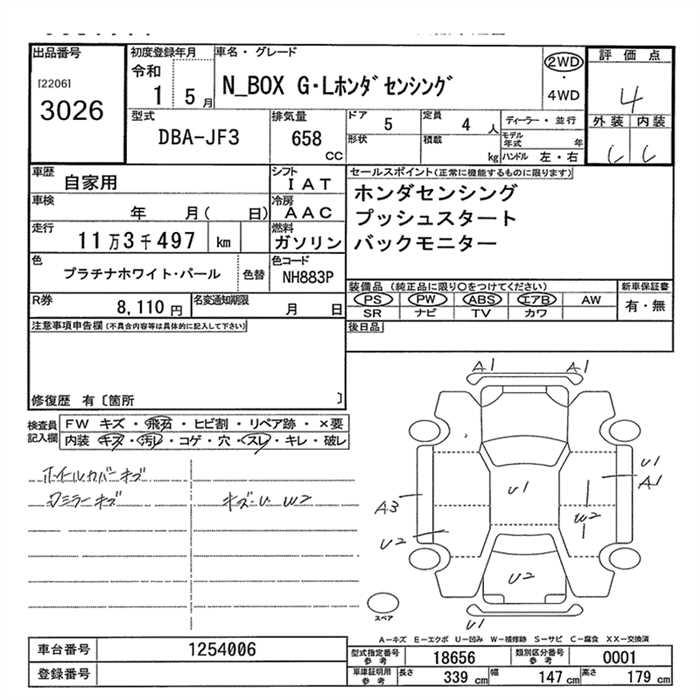 出品番号
[2206]
3026
初度登録年月
令和
1 5月
車名・グレード
N_BOX G・Lホンダセンシング
2WD
・
4WD
評価点
4
外装 内装
型式
DBA-JF3
排気量
658
CC
ドア
5
定員
4 人
形状
積載
kg
ディーラー・並行
モデル年式 年
ハンドル 左・右
車歴
自家用
シフト
IAT
車検
年 月( 日)
冷房
AAC
走行
11万3千497 km
燃料
ガソリン
色
プラチナホワイト・パール
色替
色コード
NH883P
R券
8,110円
名変通知期限
月 日
セールスポイント(正常に機能するものに限ります)
ホンダセンシング
プッシュスタート
バックモニター
装備品(純正品に限り○をつけてください)
PS PW ABS エアB AW
SR ナビ TV カワ
新車保証書
有・無
後日品
注意事項申告欄(不具合内容等は具体的に記入して下さい)
修復歴 有〔箇所 〕
検査員記入欄
FW キズ・飛石・ヒビ割・リペア跡・×要
内装 キズ・汚レ・コゲ・穴・スレ・キレ・破レ
ホイールカバーキズ
ワミラーキズ
キズ・U W2
A1 A1
U1
A1
U1
A3
W2
U2
U2
U1
スペア
A−キズ E−エクボ U−凹み W−補修跡 S−サビ C−腐食 XX−交換済
車台番号 1254006
登録番号
型式指定番号参考 18656
類別区分番号参考 0001
車庫証明用参考 長さ 339 cm 幅 147 cm 高さ 179 cm